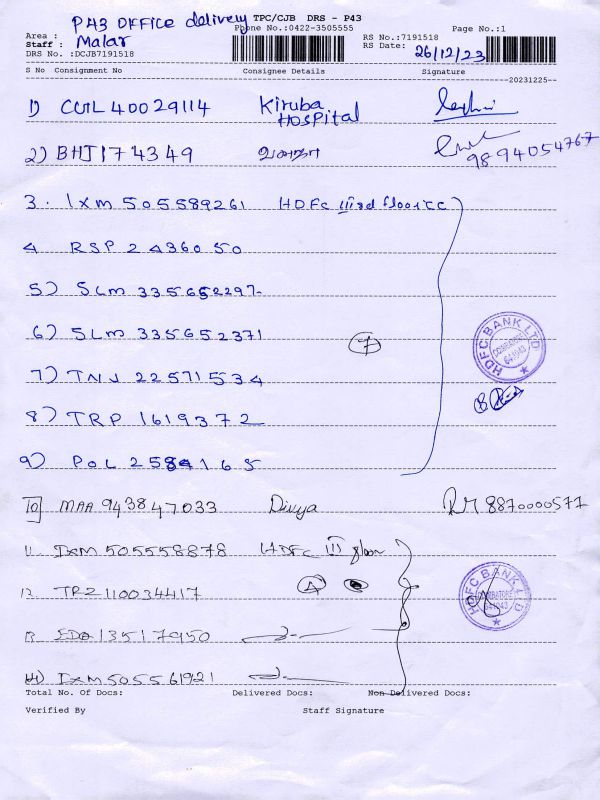 P43 OFFICE delivery TPC/CJB DRS - P43
Phone No.:0422-3505555 Page No.:1
Area :
Staff : Malar RS No.:7191518
DRS No. :DCJB7191518 RS Date: 26/12/23
S No Consignment No Consignee Details Signature
20231225
1) CUL40029114 Kiruba Hospital
2) BHJ174349 9894054767
3. IXM 505589261 HDFC III rd floor CC
4 RSP 2436050
5) SLM 335652297
6) SLM 335652371
7
7) TNJ 22571534
HDFC BANK LTD COIMBATORE 641043
8) TRP 1619372
9) POL 2584165
10 MAA 943847033 Divya 8870000577
11 IXM 505558878 HDFC III floor
12 TRZ 110034417 4
HDFC BANK LTD COIMBATORE 641043
13 EDO 13517950
14) IXM 505561921
Total No. Of Docs: Delivered Docs: Non Delivered Docs:
Verified By Staff Signature